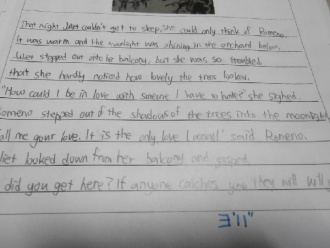 That night Juliet couldn't get to sleep, she could only think of Romeno.
It was warm and the moonlight was shining in the orchard below.
Juliet stepped out onto her balcony, but she was so troubled
that she hardly noticed how lovely the trees looked.
"How could I be in love with someone I have to hate?" she sighed.
Romeno stepped out of the shadows of the trees into the moonlight
all me your love. It is the only love I want" said Romeno.
liet looked down from her balcony and gasped.
did you get here? If anyone catches you they will